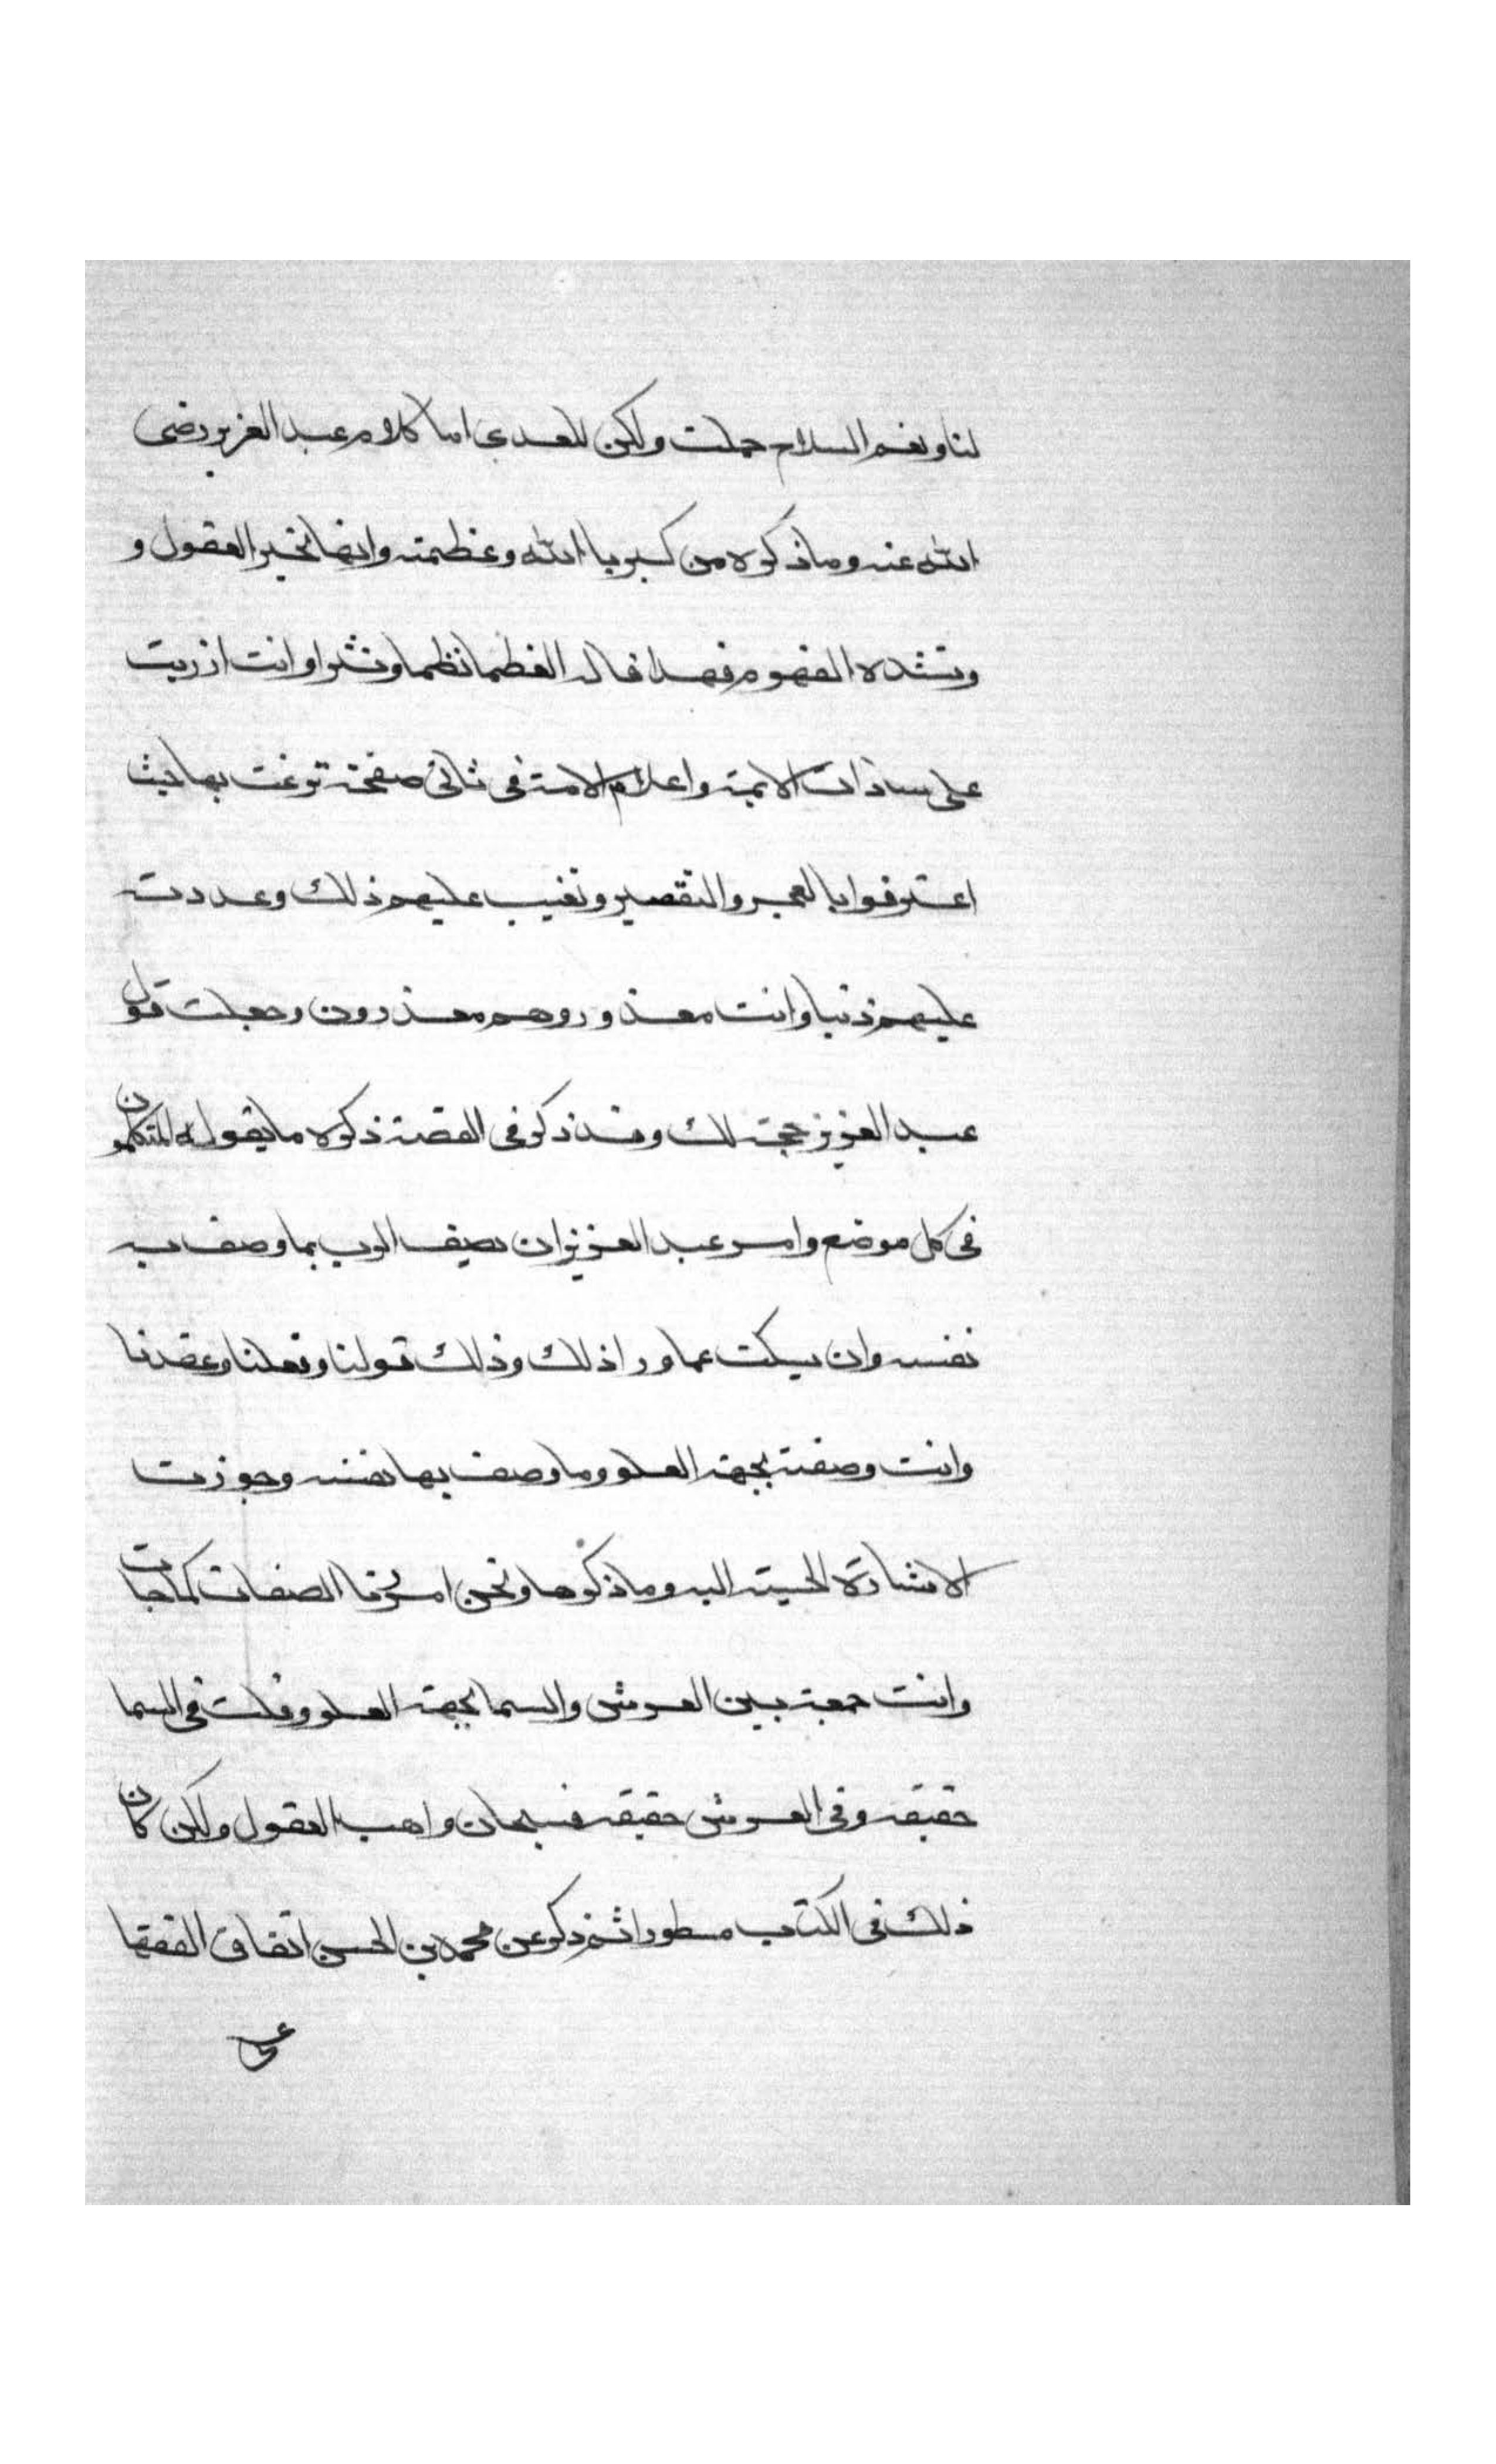 لنا ونعم السلاح حملت ولكن للعدى اما كلام عبد العزيز رضى
الله عنه وما ذكره من كبريا الله وعظمته وانها تحير العقول و
وتشده الفهوم فهذا قاله العظما نظما ونثرا وانت ازريت
على سادات الايمة واعلام الامة فى ثانى صفحة نزغت بها حيث
اعترفوا بالعجز والتقصير وتعيب عليهم ذلك وعددت
عليهم ذنبا وانت معذور وهم معذرون وجعلت قول
عبد العزيز حجة لك وقد ذكر فى القصة ذكره ما يقوله المتكلمون
فى كل موضع وامر عبد العزيز ان يصف الرب بما وصف به
نفسه وان يسكت عما ورا ذلك وذلك قولنا وفعلنا وعقدنا
وانت وصفته بجهة العلو وما وصف بها نفسه وجوزت
الاشارة الحسية اليه وما ذكرها ونحن امررنا الصفات كما جات
وانت جمعت بين العرش والسما بجهة العلو وقلت فى السما
حقيقه وفى العرش حقيقه فسبحان واهب العقول ولكن كان
ذلك فى الكتاب مسطورا ثم ذكر عن محمد بن الحسن اتفاق الفقها